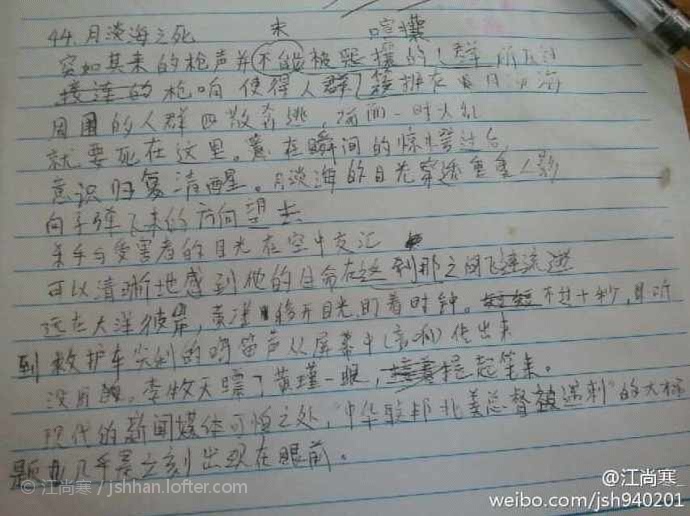 44.月淡海之死 未 喧攘
突如其来的枪声并不能被 攘的人群所
接连的枪响使得人群 拥在 月淡海
周围的人群四散奔逃，场面一时大乱
就要死在这里。 在瞬间的惊 过后
意识归复清醒。月淡海的目光穿透重重人影
向子弹飞来的方向望去
杀手与受害者的目光在空中交汇
可以清晰地感到他的生命在这刹那之间飞速流逝
远在大洋彼岸，黄瑾移开目光盯着时钟。 不过十秒，且听
到救护车尖利的鸣笛声从屏幕中 传出来
没用的。李牧天瞟了黄瑾一眼， 提起笔来。
现代的新闻媒体可怕之处，“中华联邦北美总督被遇刺”的大标
题 几乎是立刻出现在眼前。
© 江尚寒 / jshhan.lofter.com
@江尚寒_
weibo.com/jsh940201